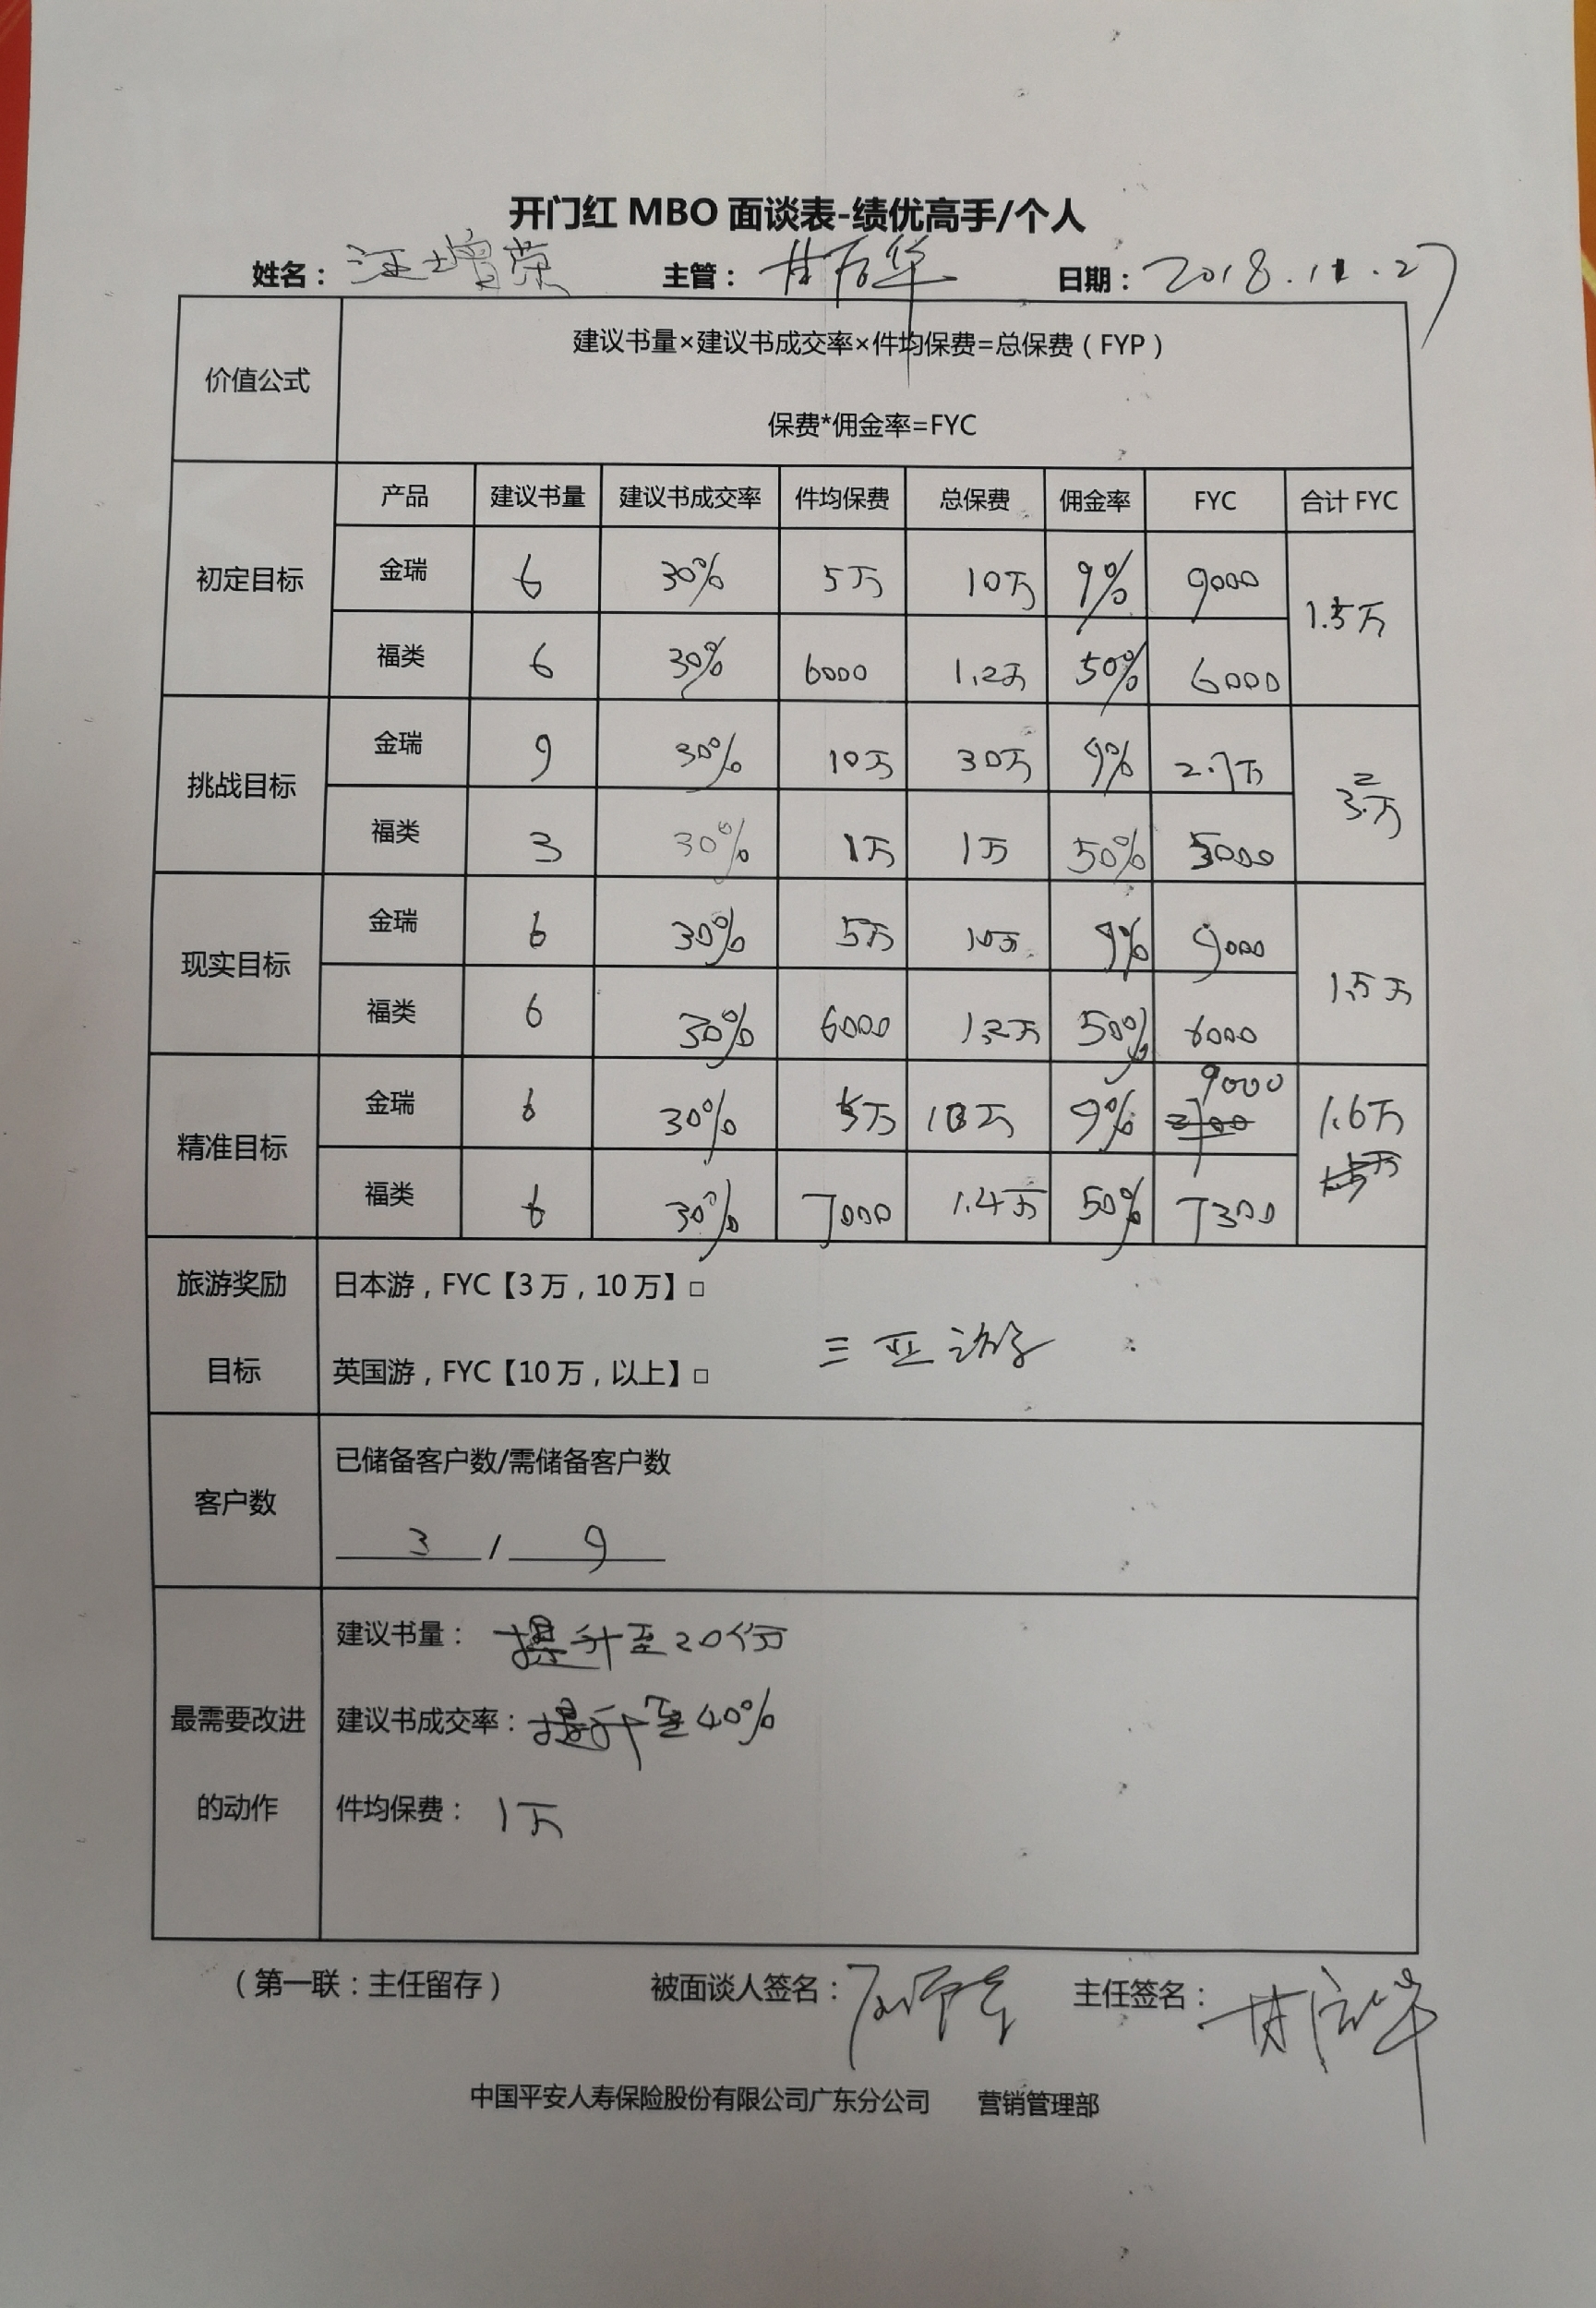 开门红 MBO 面谈表-绩优高手/个人
姓名： 汪增荣 主管： 甘 华 日期： 2018.11.27
价值公式
建议书量×建议书成交率×件均保费=总保费（FYP）
保费*佣金率=FYC
产品 建议书量 建议书成交率 件均保费 总保费 佣金率 FYC 合计 FYC
初定目标 金瑞 6 30% 5万 10万 9% 9000 1.5万
福类 6 30% 6000 1.2万 50% 6000
挑战目标 金瑞 9 30% 10万 30万 9% 2.7万 3.2万
福类 3 30% 1万 1万 50% 5000
现实目标 金瑞 6 30% 5万 10万 9% 9000 1.5万
福类 6 30% 6000 1.2万 50% 6000
精准目标 金瑞 6 30% 5万 10万 9% 9000 1.6万
福类 6 30% 7000 1.4万 50% 7300
旅游奖励目标
日本游，FYC【3 万，10 万】□
英国游，FYC【10 万，以上】□ 三亚游
客户数
已储备客户数/需储备客户数
3 / 9
最需要改进的动作
建议书量： 提升至20份
建议书成交率： 提升至40%
件均保费： 1万
（第一联：主任留存） 被面谈人签名： 主任签名： 甘 华
中国平安人寿保险股份有限公司广东分公司 营销管理部